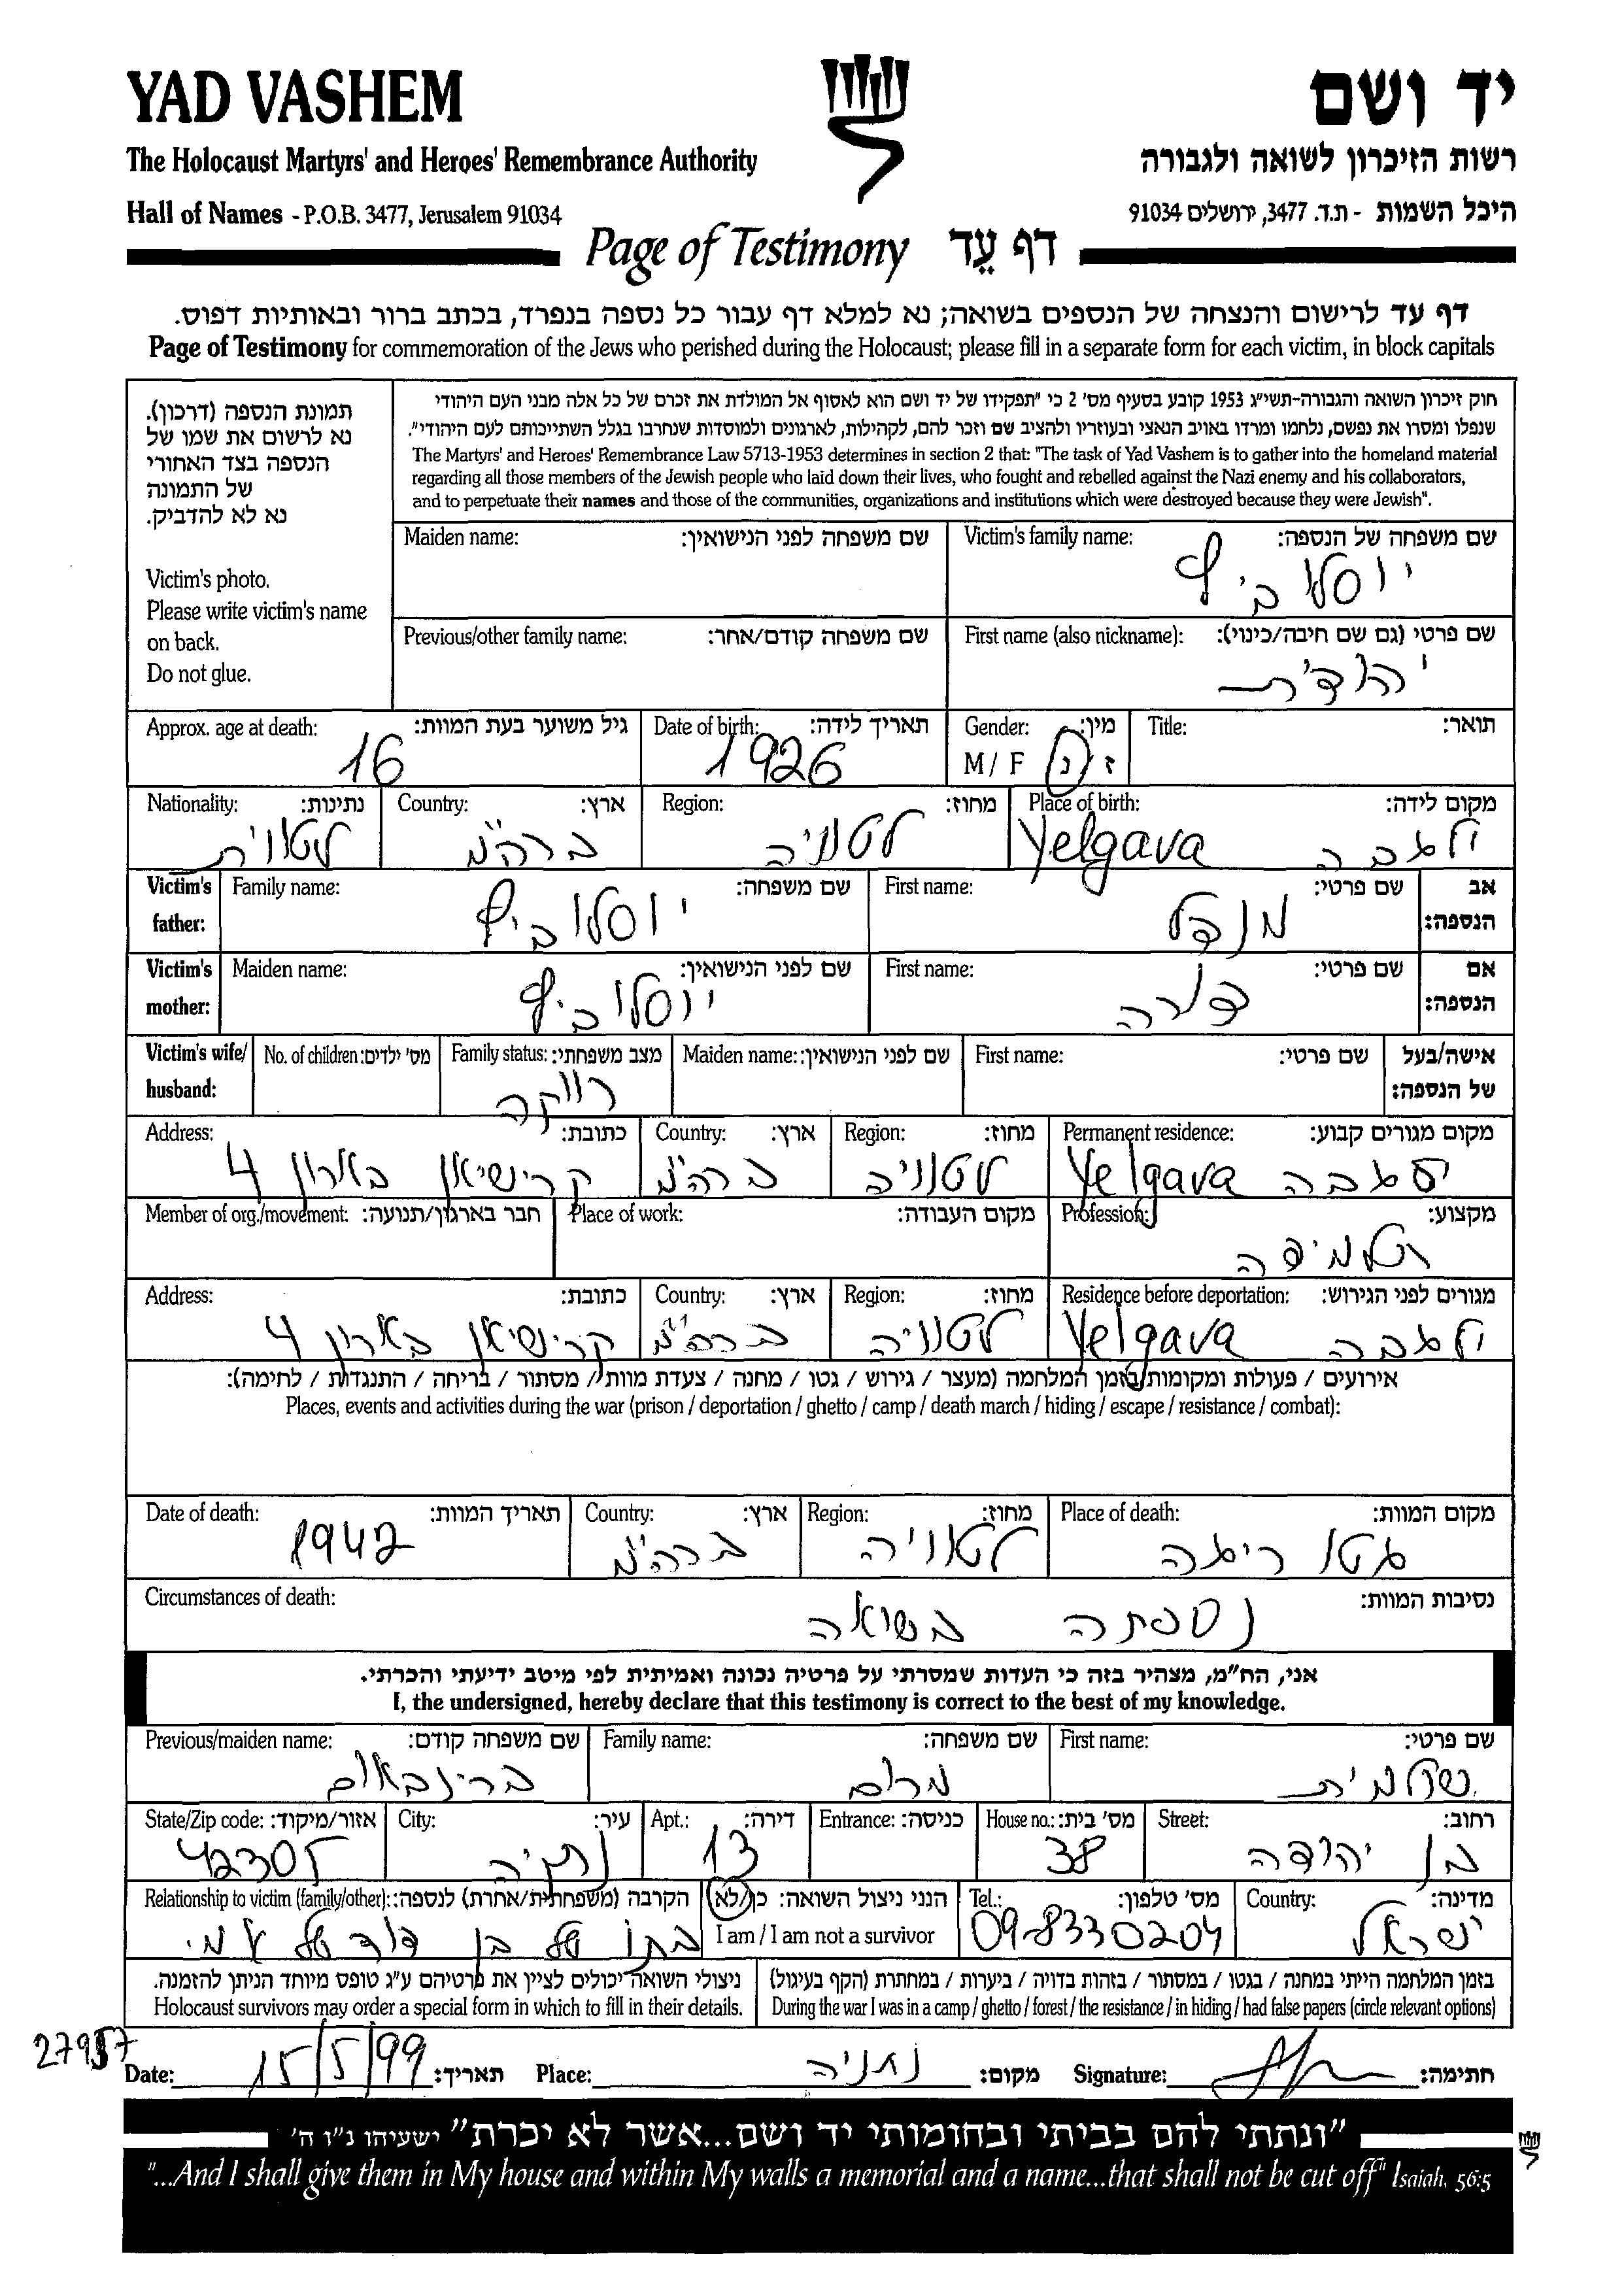 YAD VASHEM
יד ושם
The Holocaust Martyrs' and Heroes' Remembrance Authority
רשות הזיכרון לשואה ולגבורה
Hall of Names - P.O.B. 3477, Jerusalem 91034
היכל השמות - ת.ד. 3477, ירושלים 91034
Page of Testimony דף עֵד
דף עד לרישום והנצחה של הנספים בשואה; נא למלא דף עבור כל נספה בנפרד, בכתב ברור ובאותיות דפוס.
Page of Testimony for commemoration of the Jews who perished during the Holocaust; please fill in a separate form for each victim, in block capitals
תמונת הנספה (דרכון).
נא לרשום את שמו של
הנספה בצד האחורי
של התמונה
נא לא להדביק.
Victim's photo.
Please write victim's name
on back.
Do not glue.
חוק זיכרון השואה והגבורה-תשי"ג 1953 קובע בסעיף מס' 2 כי "תפקידו של יד ושם הוא לאסוף אל המולדת את זכרם של כל אלה מבני העם היהודי
שנפלו ומסרו את נפשם, נלחמו ומרדו באויב הנאצי ובעוזריו ולהציב שם וזכר להם, לקהילות, לארגונים ולמוסדות שנחרבו בגלל השתייכותם לעם היהודי".
The Martyrs' and Heroes' Remembrance Law 5713-1953 determines in section 2 that: "The task of Yad Vashem is to gather into the homeland material
regarding all those members of the Jewish people who laid down their lives, who fought and rebelled against the Nazi enemy and his collaborators,
and to perpetuate their names and those of the communities, organizations and institutions which were destroyed because they were Jewish".
Victim's family name: שם משפחה של הנספה:
יוסלוביץ
Maiden name: שם משפחה לפני הנישואין:
First name (also nickname): שם פרטי (גם שם חיבה/כינוי):
יהודית
Previous/other family name: שם משפחה קודם/אחר:
Title: תואר:
Gender: מין:
M / F ז / נ
Date of birth: תאריך לידה:
1926
Approx. age at death: גיל משוער בעת המוות:
16
Place of birth: מקום לידה:
ילגבה Yelgava
Region: מחוז:
לטוניה
Country: ארץ:
ברה"מ
Nationality: נתינות:
לטווית
Victim's father: אב הנספה:
First name: שם פרטי:
מנדל
Family name: שם משפחה:
יוסלוביץ
Victim's mother: אם הנספה:
First name: שם פרטי:
דורה
Maiden name: שם לפני הנישואין:
יוסלוביץ
Victim's wife/ husband: אישה/בעל של הנספה:
First name: שם פרטי:
Maiden name: שם לפני הנישואין:
Family status: מצב משפחתי:
רווקה
No. of children: מס' ילדים:
Permanent residence: מקום מגורים קבוע:
ילגבה Yelgava
Region: מחוז:
לטוניה
Country: ארץ:
ברה"מ
Address: כתובת:
קרישיאן בארון 4
Profession: מקצוע:
תלמידה
Place of work: מקום העבודה:
Member of org./movement: חבר בארגון/תנועה:
Residence before deportation: מגורים לפני הגירוש:
ילגבה Yelgava
Region: מחוז:
לטוניה
Country: ארץ:
ברה"מ
Address: כתובת:
קרישיאן בארון 4
אירועים / פעולות ומקומות בזמן המלחמה (מעצר / גירוש / גטו / מחנה / צעדת מוות / מסתור / בריחה / התנגדות / לחימה):
Places, events and activities during the war (prison / deportation / ghetto / camp / death march / hiding / escape / resistance / combat):
Place of death: מקום המוות:
גטו ריגה
Region: מחוז:
לטוויה
Country: ארץ:
ברה"מ
Date of death: תאריך המוות:
1942
Circumstances of death: נסיבות המוות:
נספתה בשואה
אני, הח"מ, מצהיר בזה כי העדות שמסרתי על פרטיה נכונה ואמיתית לפי מיטב ידיעתי והכרתי.
I, the undersigned, hereby declare that this testimony is correct to the best of my knowledge.
First name: שם פרטי:
שולמית
Family name: שם משפחה:
מרום
Previous/maiden name: שם משפחה קודם:
ברינבאום
Street: רחוב:
בן יהודה
House no.: מס' בית:
38
Entrance: כניסה:
Apt.: דירה:
13
City: עיר:
נתניה
State/Zip code: אזור/מיקוד:
42305
Country: מדינה:
ישראל
Tel.: מס' טלפון:
09-8330204
הנני ניצול השואה: כן/לא
I am / I am not a survivor
Relationship to victim (family/other): הקרבה (משפחתית/אחרת) לנספה:
בתו של בן דוד של אמי
בזמן המלחמה הייתי במחנה / בגטו / במסתור / בזהות בדויה / ביערות / במחתרת (הקף בעיגול)
During the war I was in a camp / ghetto / forest / the resistance / in hiding / had false papers (circle relevant options)
ניצולי השואה יכולים לציין את פרטיהם ע"ג טופס מיוחד הניתן להזמנה.
Holocaust survivors may order a special form in which to fill in their details.
27957
Date: 15/5/99 תאריך: Place: נתניה מקום: Signature: חתימה:
"ונתתי להם בביתי ובחומותי יד ושם...אשר לא יכרת" ישעיהו נ"ו ה'
"...And I shall give them in My house and within My walls a memorial and a name...that shall not be cut off" Isaiah, 56:5